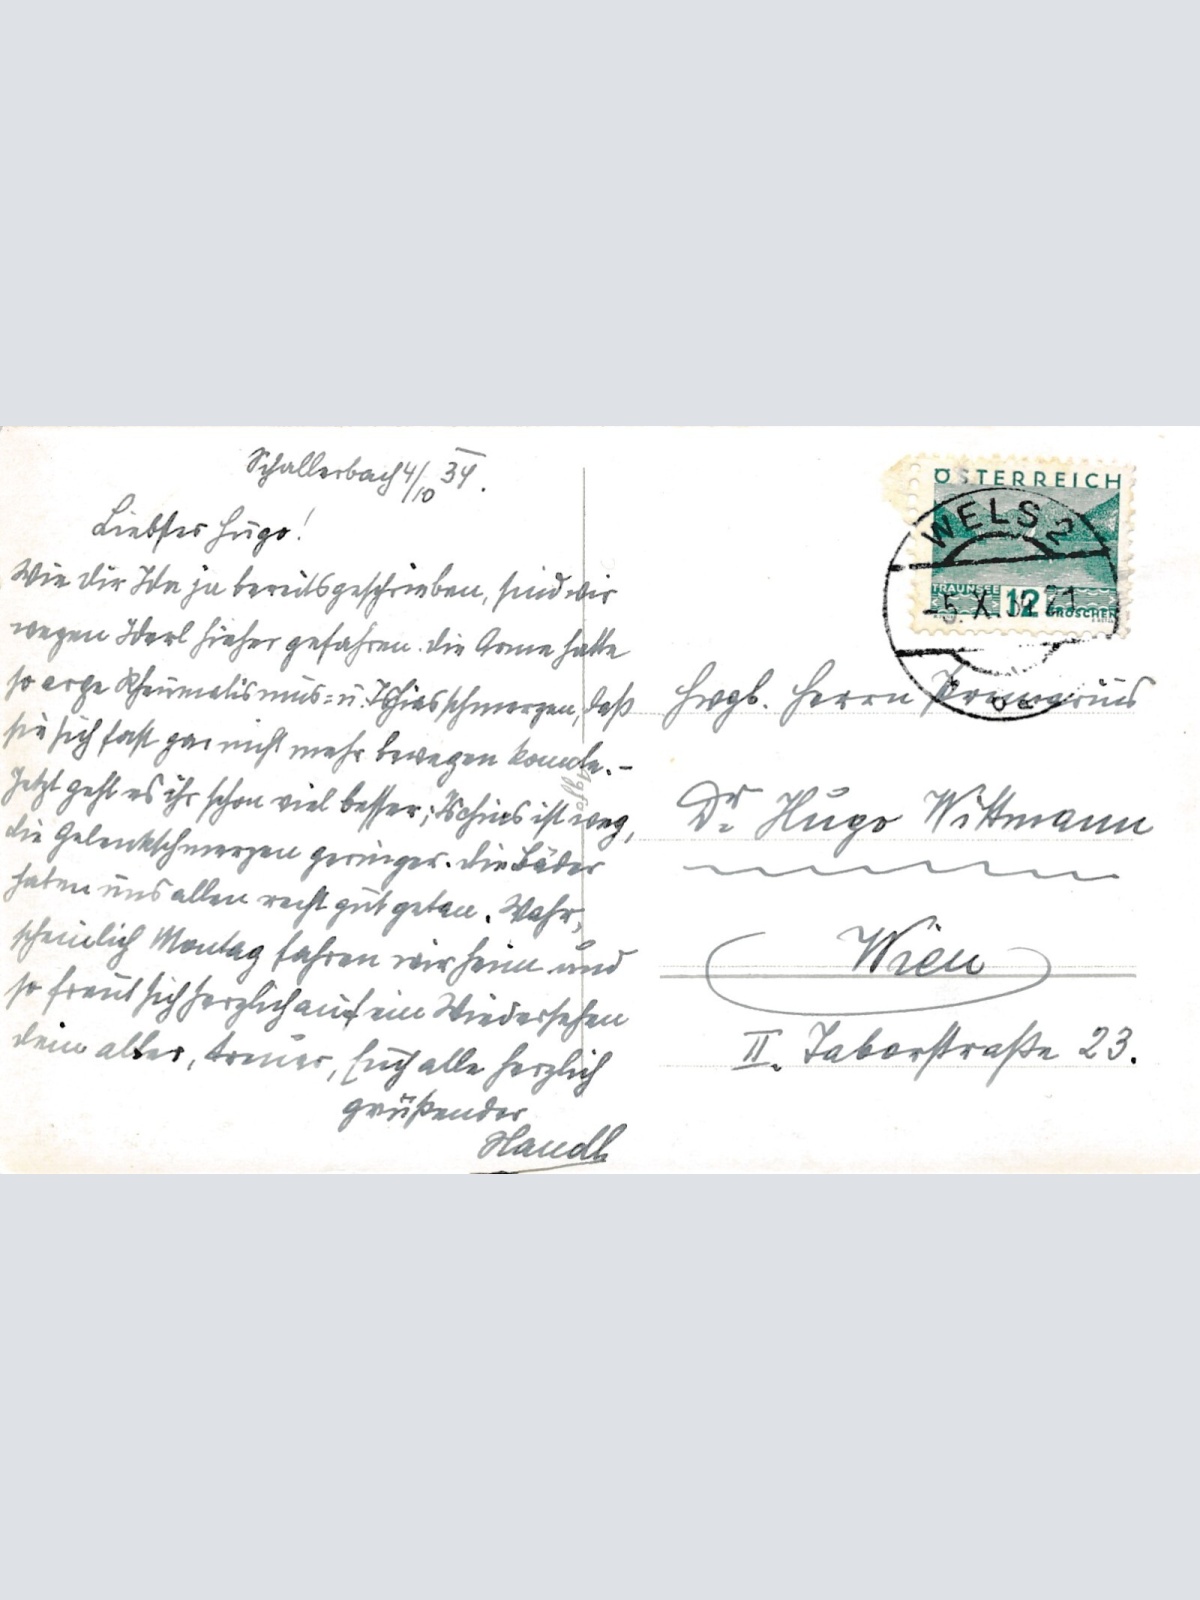 Schallerbach 4/10 34.
Liebster Hugo!
Wie dir Ida ja bereits geschrieben, sind wir
wegen Iderl hieher gefahren. Die Arme hatte
so arge Rheumatismus= u. Ischiasschmerzen, daß
sie sich fast gar nicht mehr bewegen konnte. –
Jetzt geht es ihr schon viel besser; Ischias ist weg,
die Gelenkschmerzen geringer. Die Bäder
haben uns allen recht gut getan. Wahr-
scheinlich Montag fahren wir heim und
so freut sich herzlich auf ein Wiedersehen
dein alter, treuer, Euch alle herzlich
grüßender
Agfa
ÖSTERREICH
TRAUNSEE
12 GROSCHEN
WELS 2
-5.X. 21
Hwgb. Herrn Primarius
Dr. Hugo Wittmann
Wien
II. Taborstraße 23.